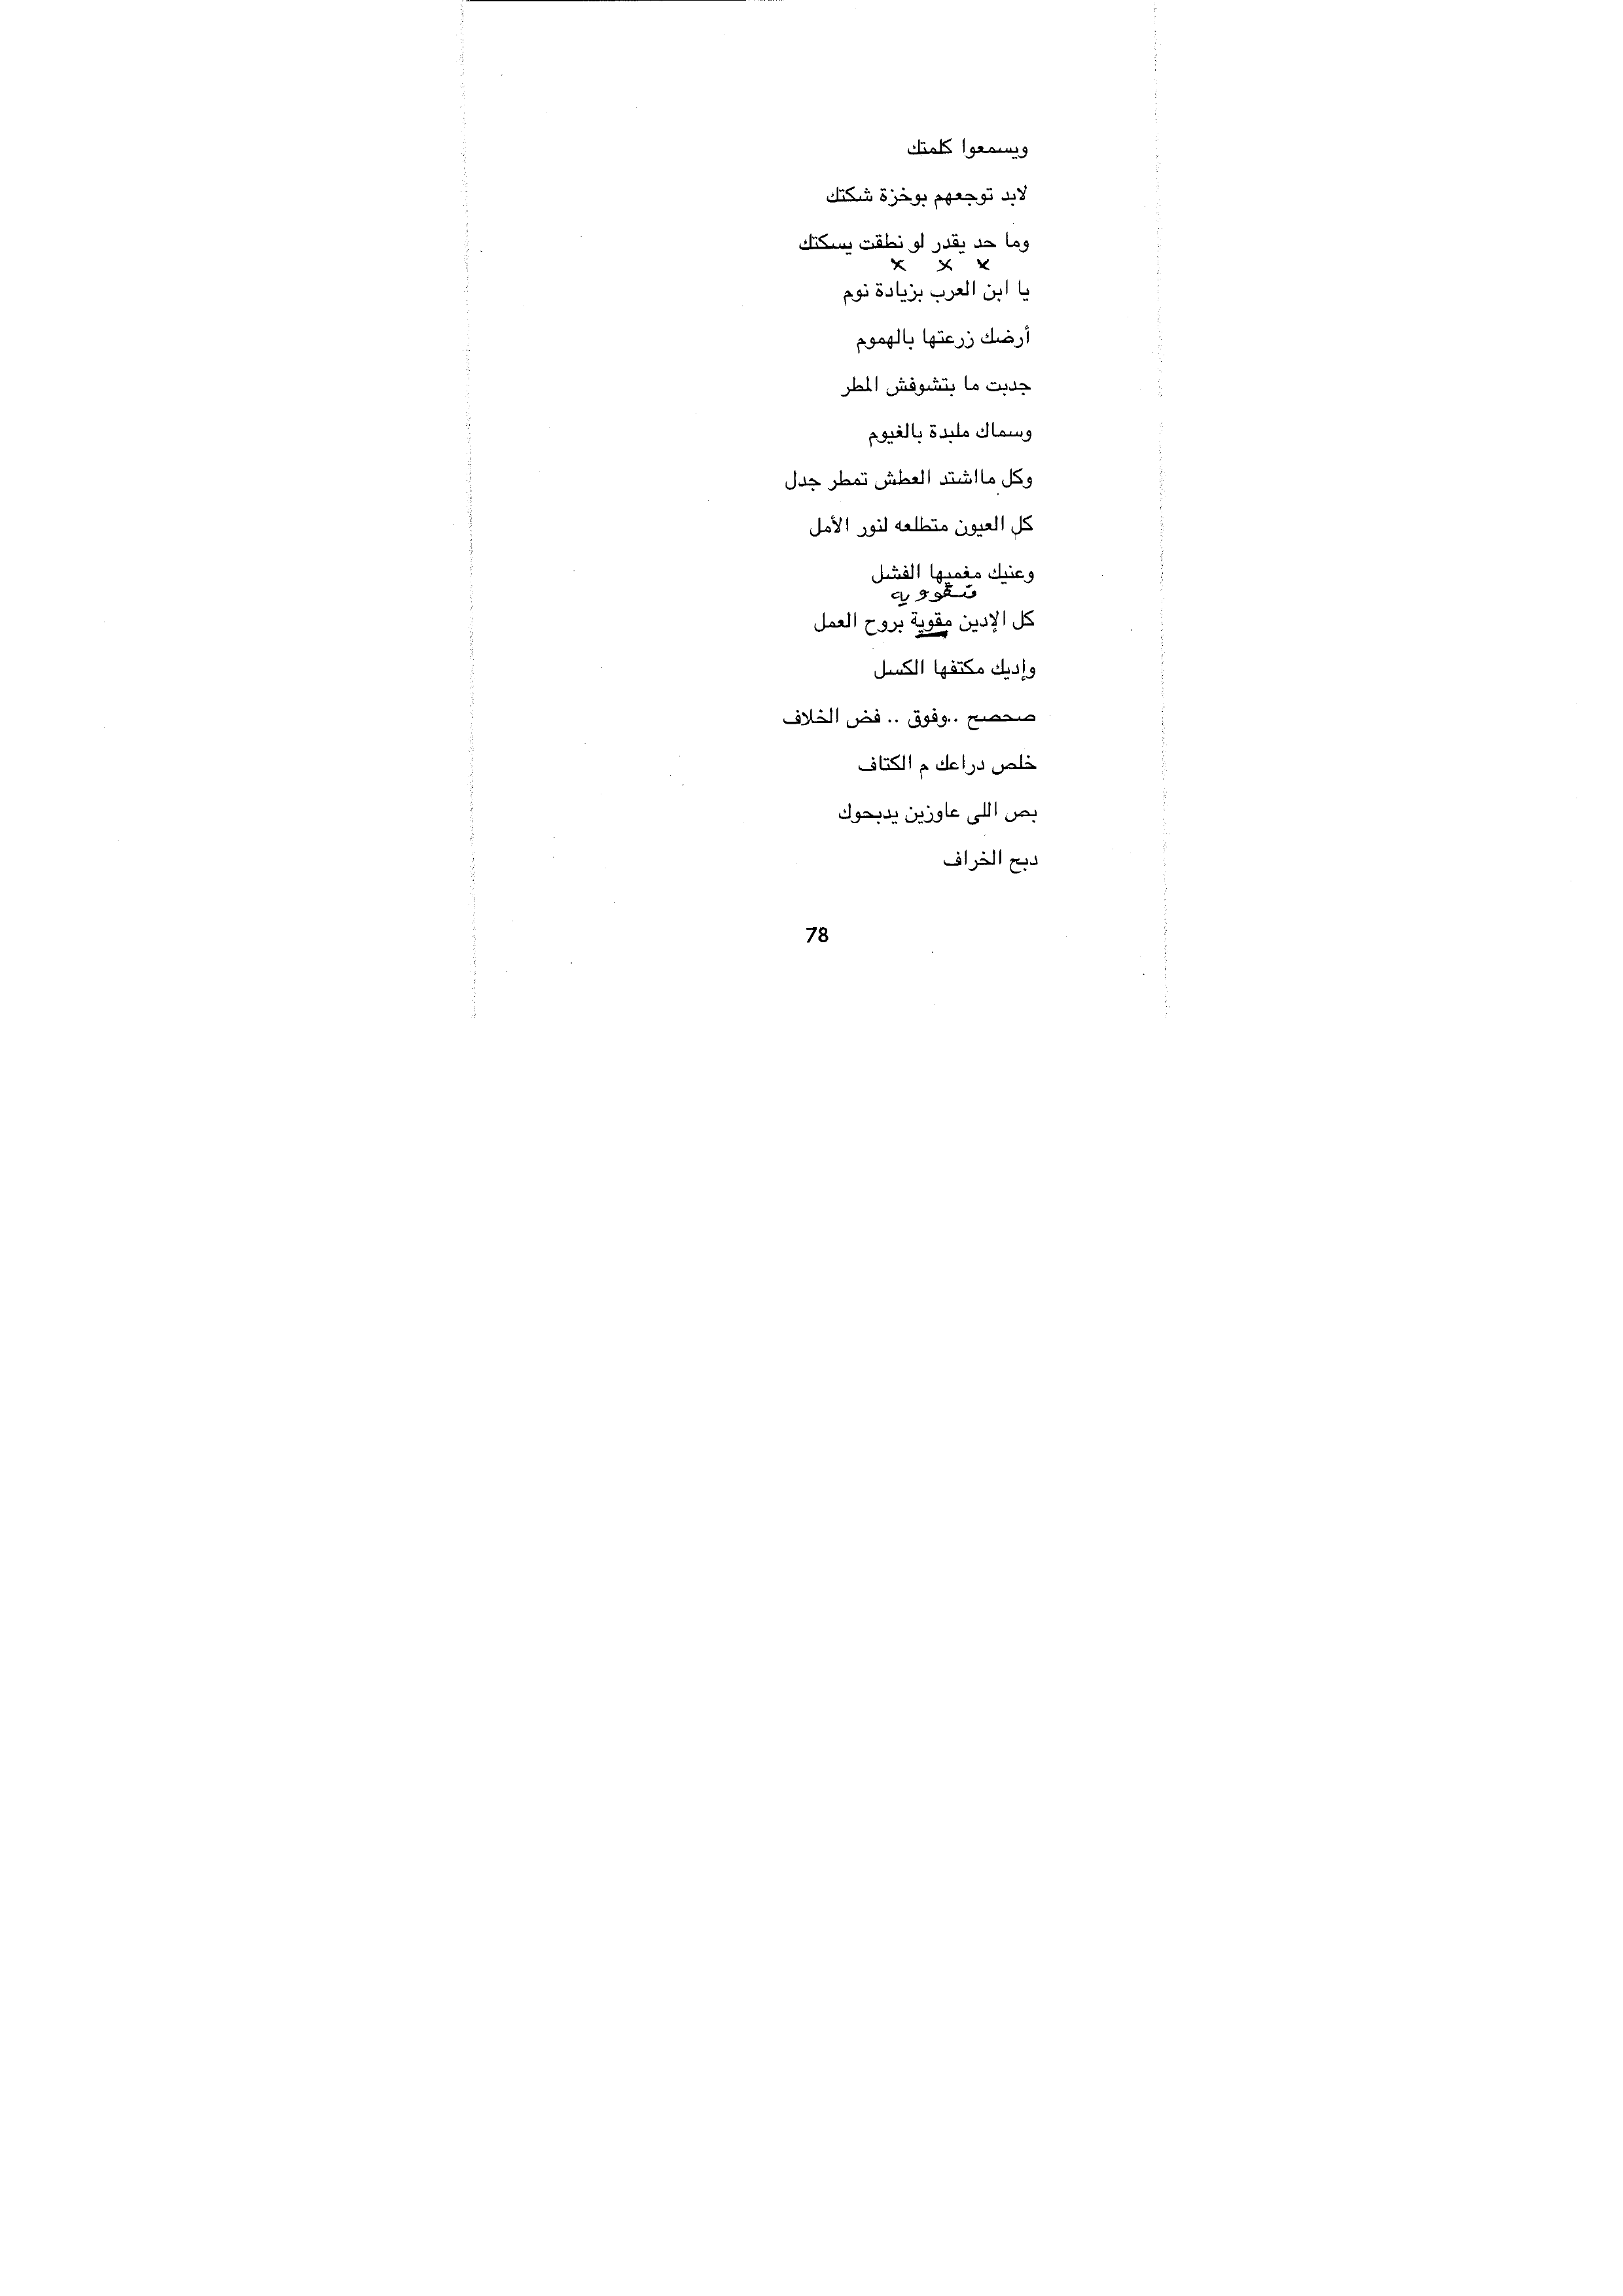 ويسمعوا كلمتك
لابد توجعهم بوخزة شكتك
وما حد يقدر لو نطقت يسكتك
× × ×
يا ابن العرب بزيادة نوم
أرضك زرعتها بالهموم
جدبت ما بتشوفش المطر
وسماك ملبدة بالغيوم
وكل مااشتد العطش تمطر جدل
كل العيون متطلعه لنور الأمل
وعنيك مغميها الفشل
كل الإدين مقوية بروح العمل
وإديك مكتفها الكسل
صحصح ..وفوق .. فض الخلاف
خلص دراعك م الكتاف
بص اللى عاوزين يدبحوك
دبح الخراف
78